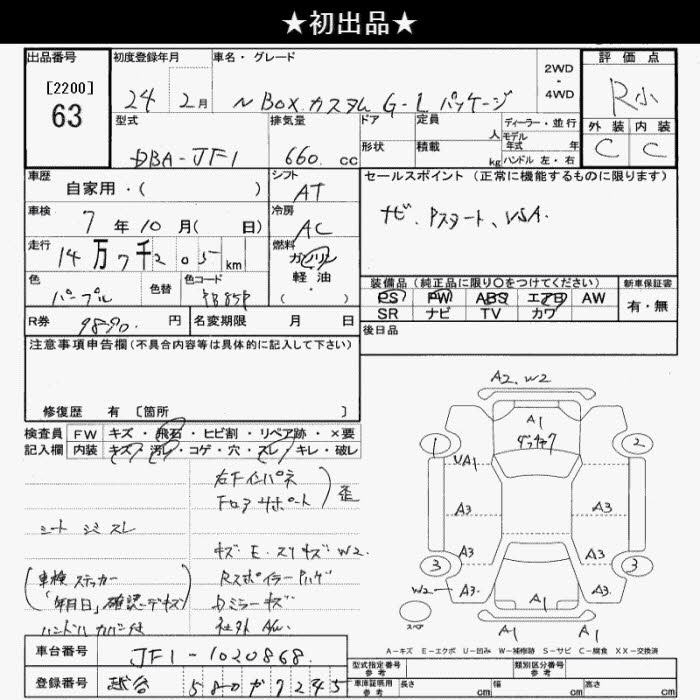 ★初出品★
出品番号
[2200]
63
初度登録年月
24 年 2月
車名・グレード
N BOX カスタム G-L パッケージ
2WD
・
4WD
評価点
R小
外装 内装
C C
型式
DBA-JF1
排気量
660 cc
ドア
形状
定員
人
積載
kg
ディーラー・並行
モデル
年式 年
ハンドル 左・右
車歴
自家用・( )
シフト
AT
セールスポイント (正常に機能するものに限ります)
ナビ、Pスタート、VSA.
車検
7年 10月( 日)
冷房
AC
走行
14万7千205km
燃料
ガソリン
軽油
・( )
色
パープル
色替
色コード
PB85P
装備品 (純正品に限り〇をつけてください)
PS PW ABS エアB AW
SR ナビ TV カワ
新車保証書
有・無
R券
9890 円
名変期限 月 日
後日品
注意事項申告欄(不具合内容等は具体的に記入して下さい)
修復歴 有 [箇所 ]
検査員
記入欄
FW キズ・飛石・ヒビ割・リペア跡・×要
内装 キズ・汚レ・コゲ・穴・スレ・キレ・破レ
右Fインパネ
Fロアサポート
歪
シートシミスレ
キズ E. スリキズ W2.
(車検ステッカー
「年月日」確認デキズ)
ハンドルカバー付
Rスポイラーハゲ
Dミラーキズ
社外AW.
A2.W2
A1
1
2
UA1
A3
A3
A3
A3
A3
3
3
W2
A3
A3
A1
A1
A1
スペア
A-キズ E-エクボ U-凹み W-補修跡 S-サビ C-腐食 XX-交換済
車台番号
JF1-1020868
登録番号
越谷 580 か 7245
型式指定番号
参考
類別区分番号
参考
車庫証明用
参考
長さ cm
幅 cm
高さ cm